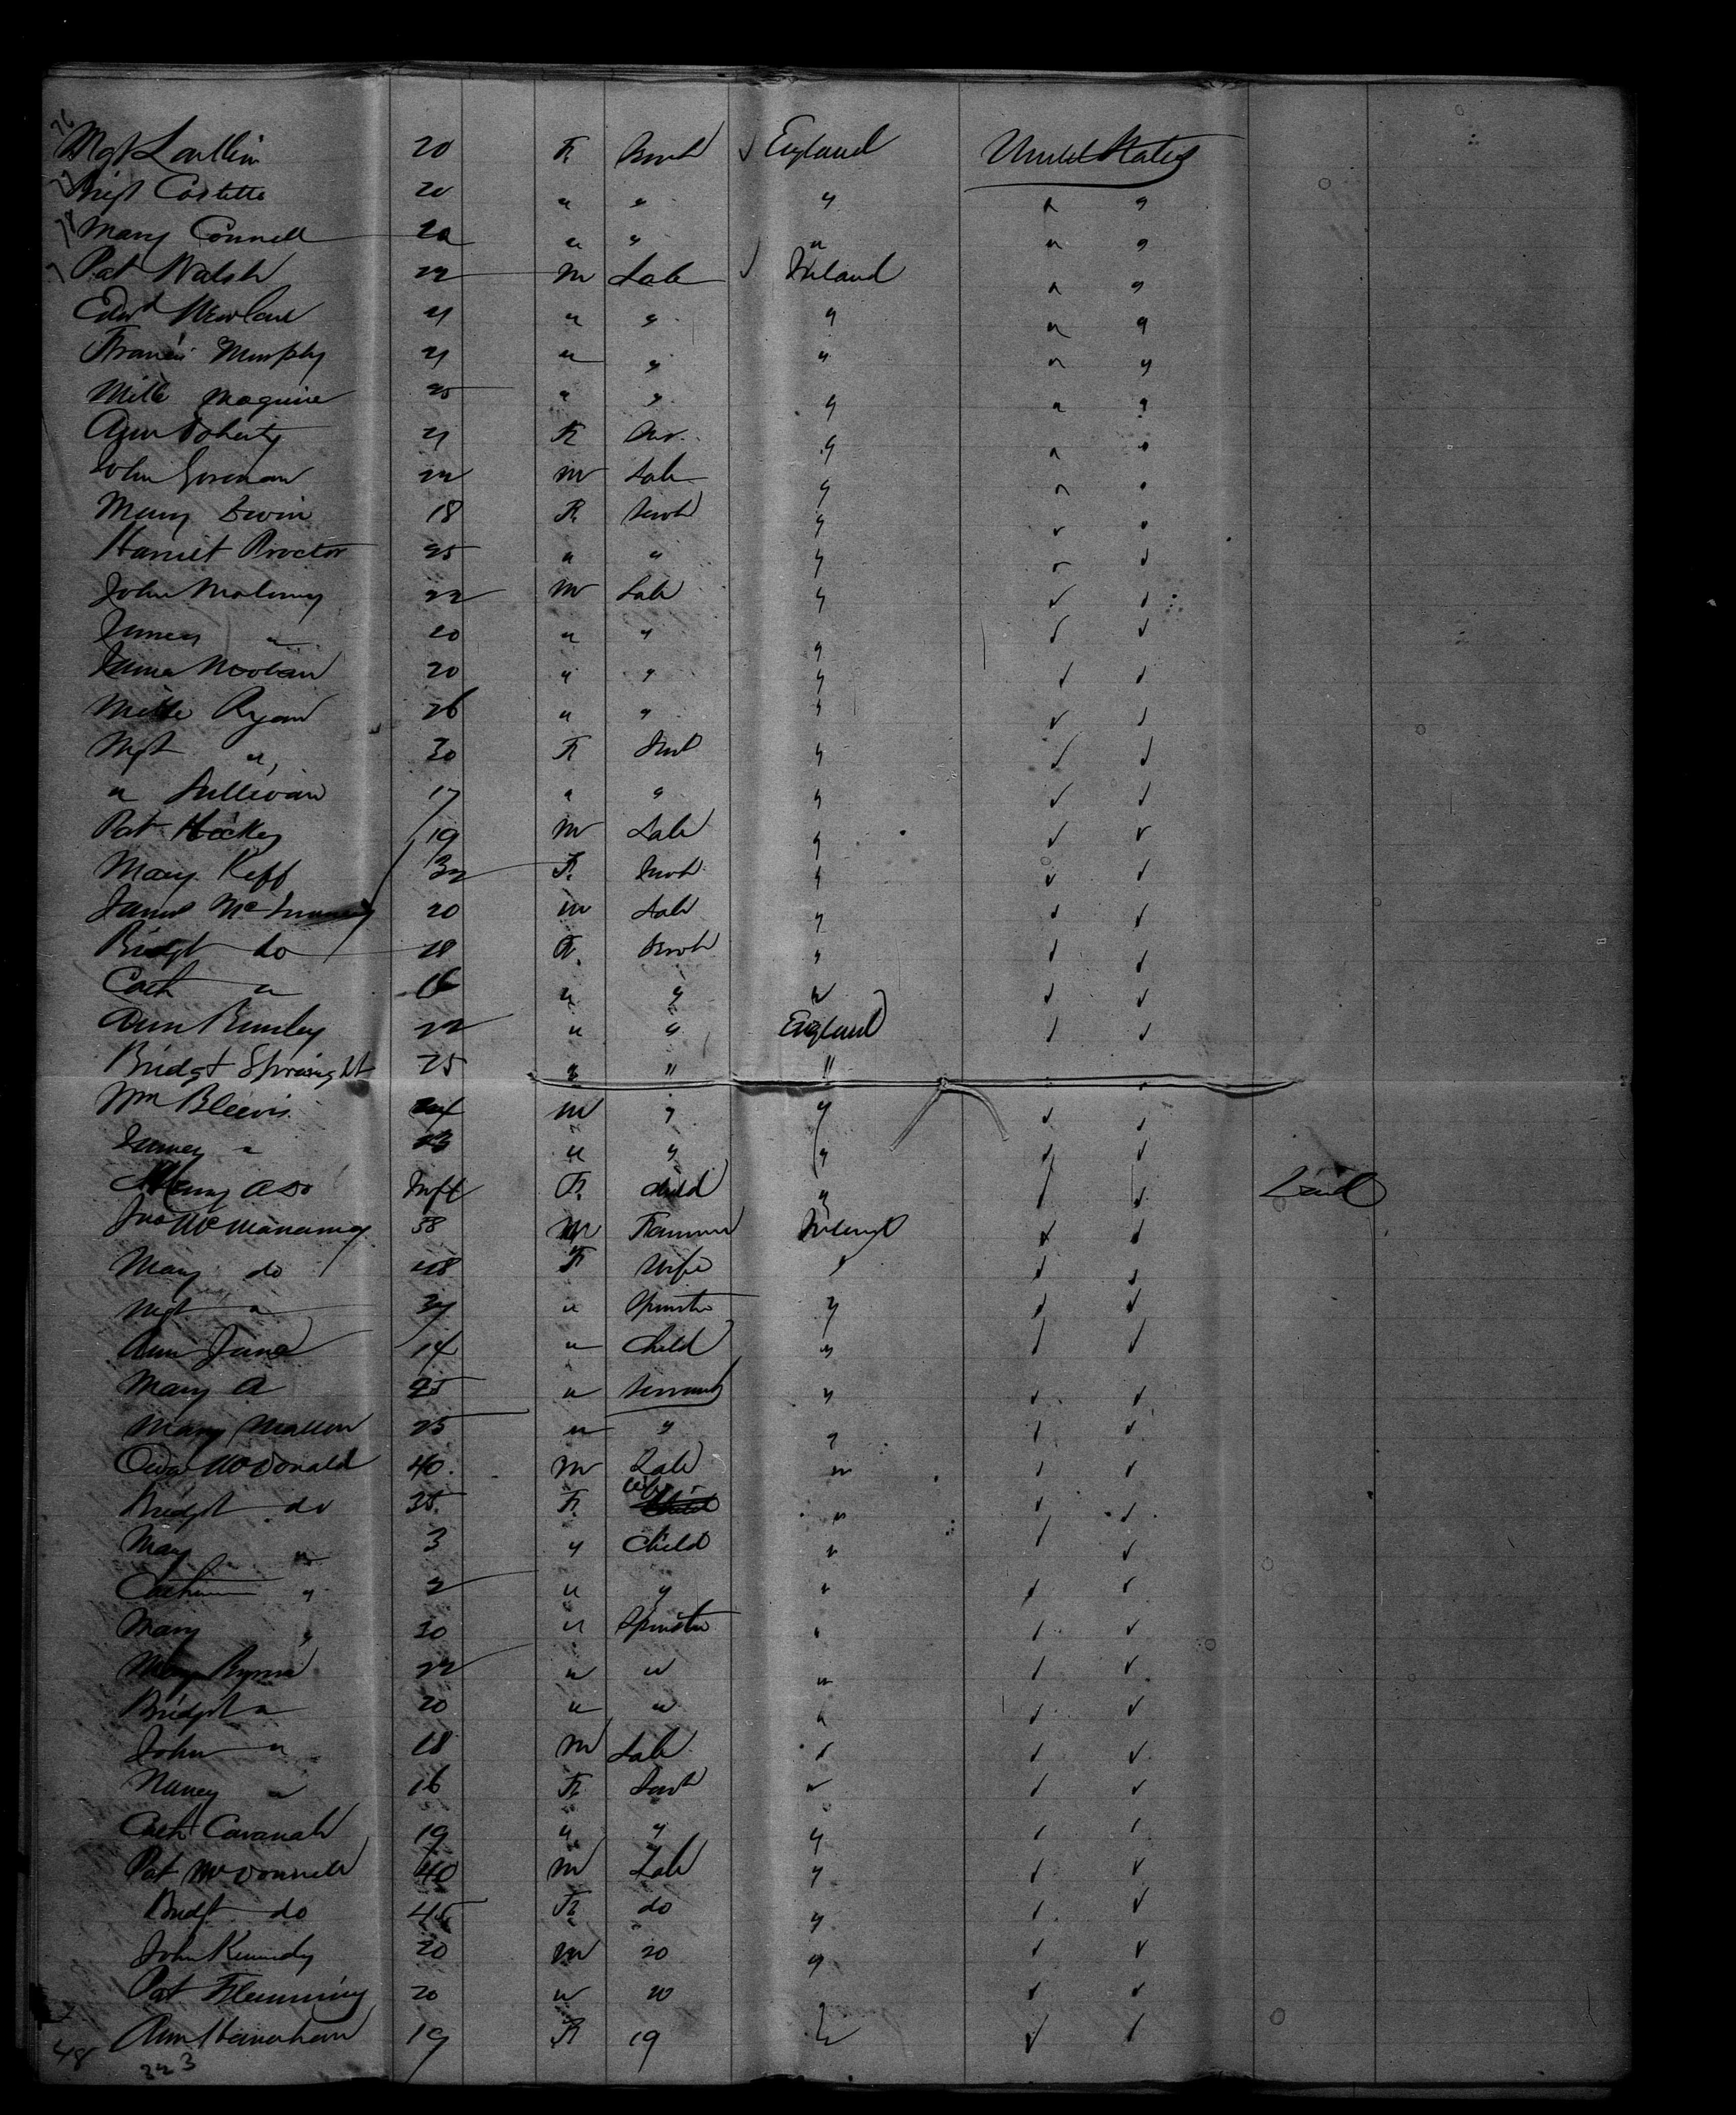 76 Mgt 20 F Servt England United States
77 Brigt Costello 20 " " " " "
78 Mary Connell 20 " " " " "
Pat Walsh 22 M Lab Ireland " "
Edwd 21 " " " " "
Francis Murphy 21 " " " " "
Mill Maguire 25 " " " " "
Ann Doherty 21 F Ser. " " "
John Gorman 22 M Lab " " "
Mary 18 F Servt " " "
Harriet Proctor 25 " " " " "
John Malony 22 M Lab " " "
James " 20 " " " " "
James Nolan 20 " " " " "
Ryan 26 " " " " "
Mgt " 30 F " " "
" Sullivan 17 " " " " "
Pat Hickey 19 M Lab " " "
Mary Keff 32 F Servt " " "
James Mc 20 M Lab " " "
Bridgt do 18 F Servt " " "
Cath " 16 " " " " "
Ann 22 " " England " "
Bridgt 25 " " " " "
Wm Bleevis 24 M " " " "
James " 23 " " " " "
Inft F Child " " "
Jno McManamy 58 M Farmer Ireland " "
Mary do 48 F Wife " " "
Mgt " " Spinster " " "
Ann Jane 14 " Child " " "
Mary A 25 " Servant " " "
Mary Mallon 25 " " " " "
Owen McDonald 40 M Lab " " "
Bridgt do 35 F Wife " " "
Mary " 3 " Child " " "
Catherine " 2 " " " " "
Mary " 30 " Spinster " " "
Mary Byrne 22 " " " " "
Bridgt " 20 " " " " "
John " 18 M Lab " " "
Nancy " 16 F Servt " " "
Cath Cavanah 19 " " " " "
Pat McDonnell 40 M Lab " " "
Bridgt do 45 F do " " "
John Kennedy 20 M 20 " " "
Pat Flemming 20 " 20 " " "
Ann Hanrahan 19 F 19 " " "
48 323